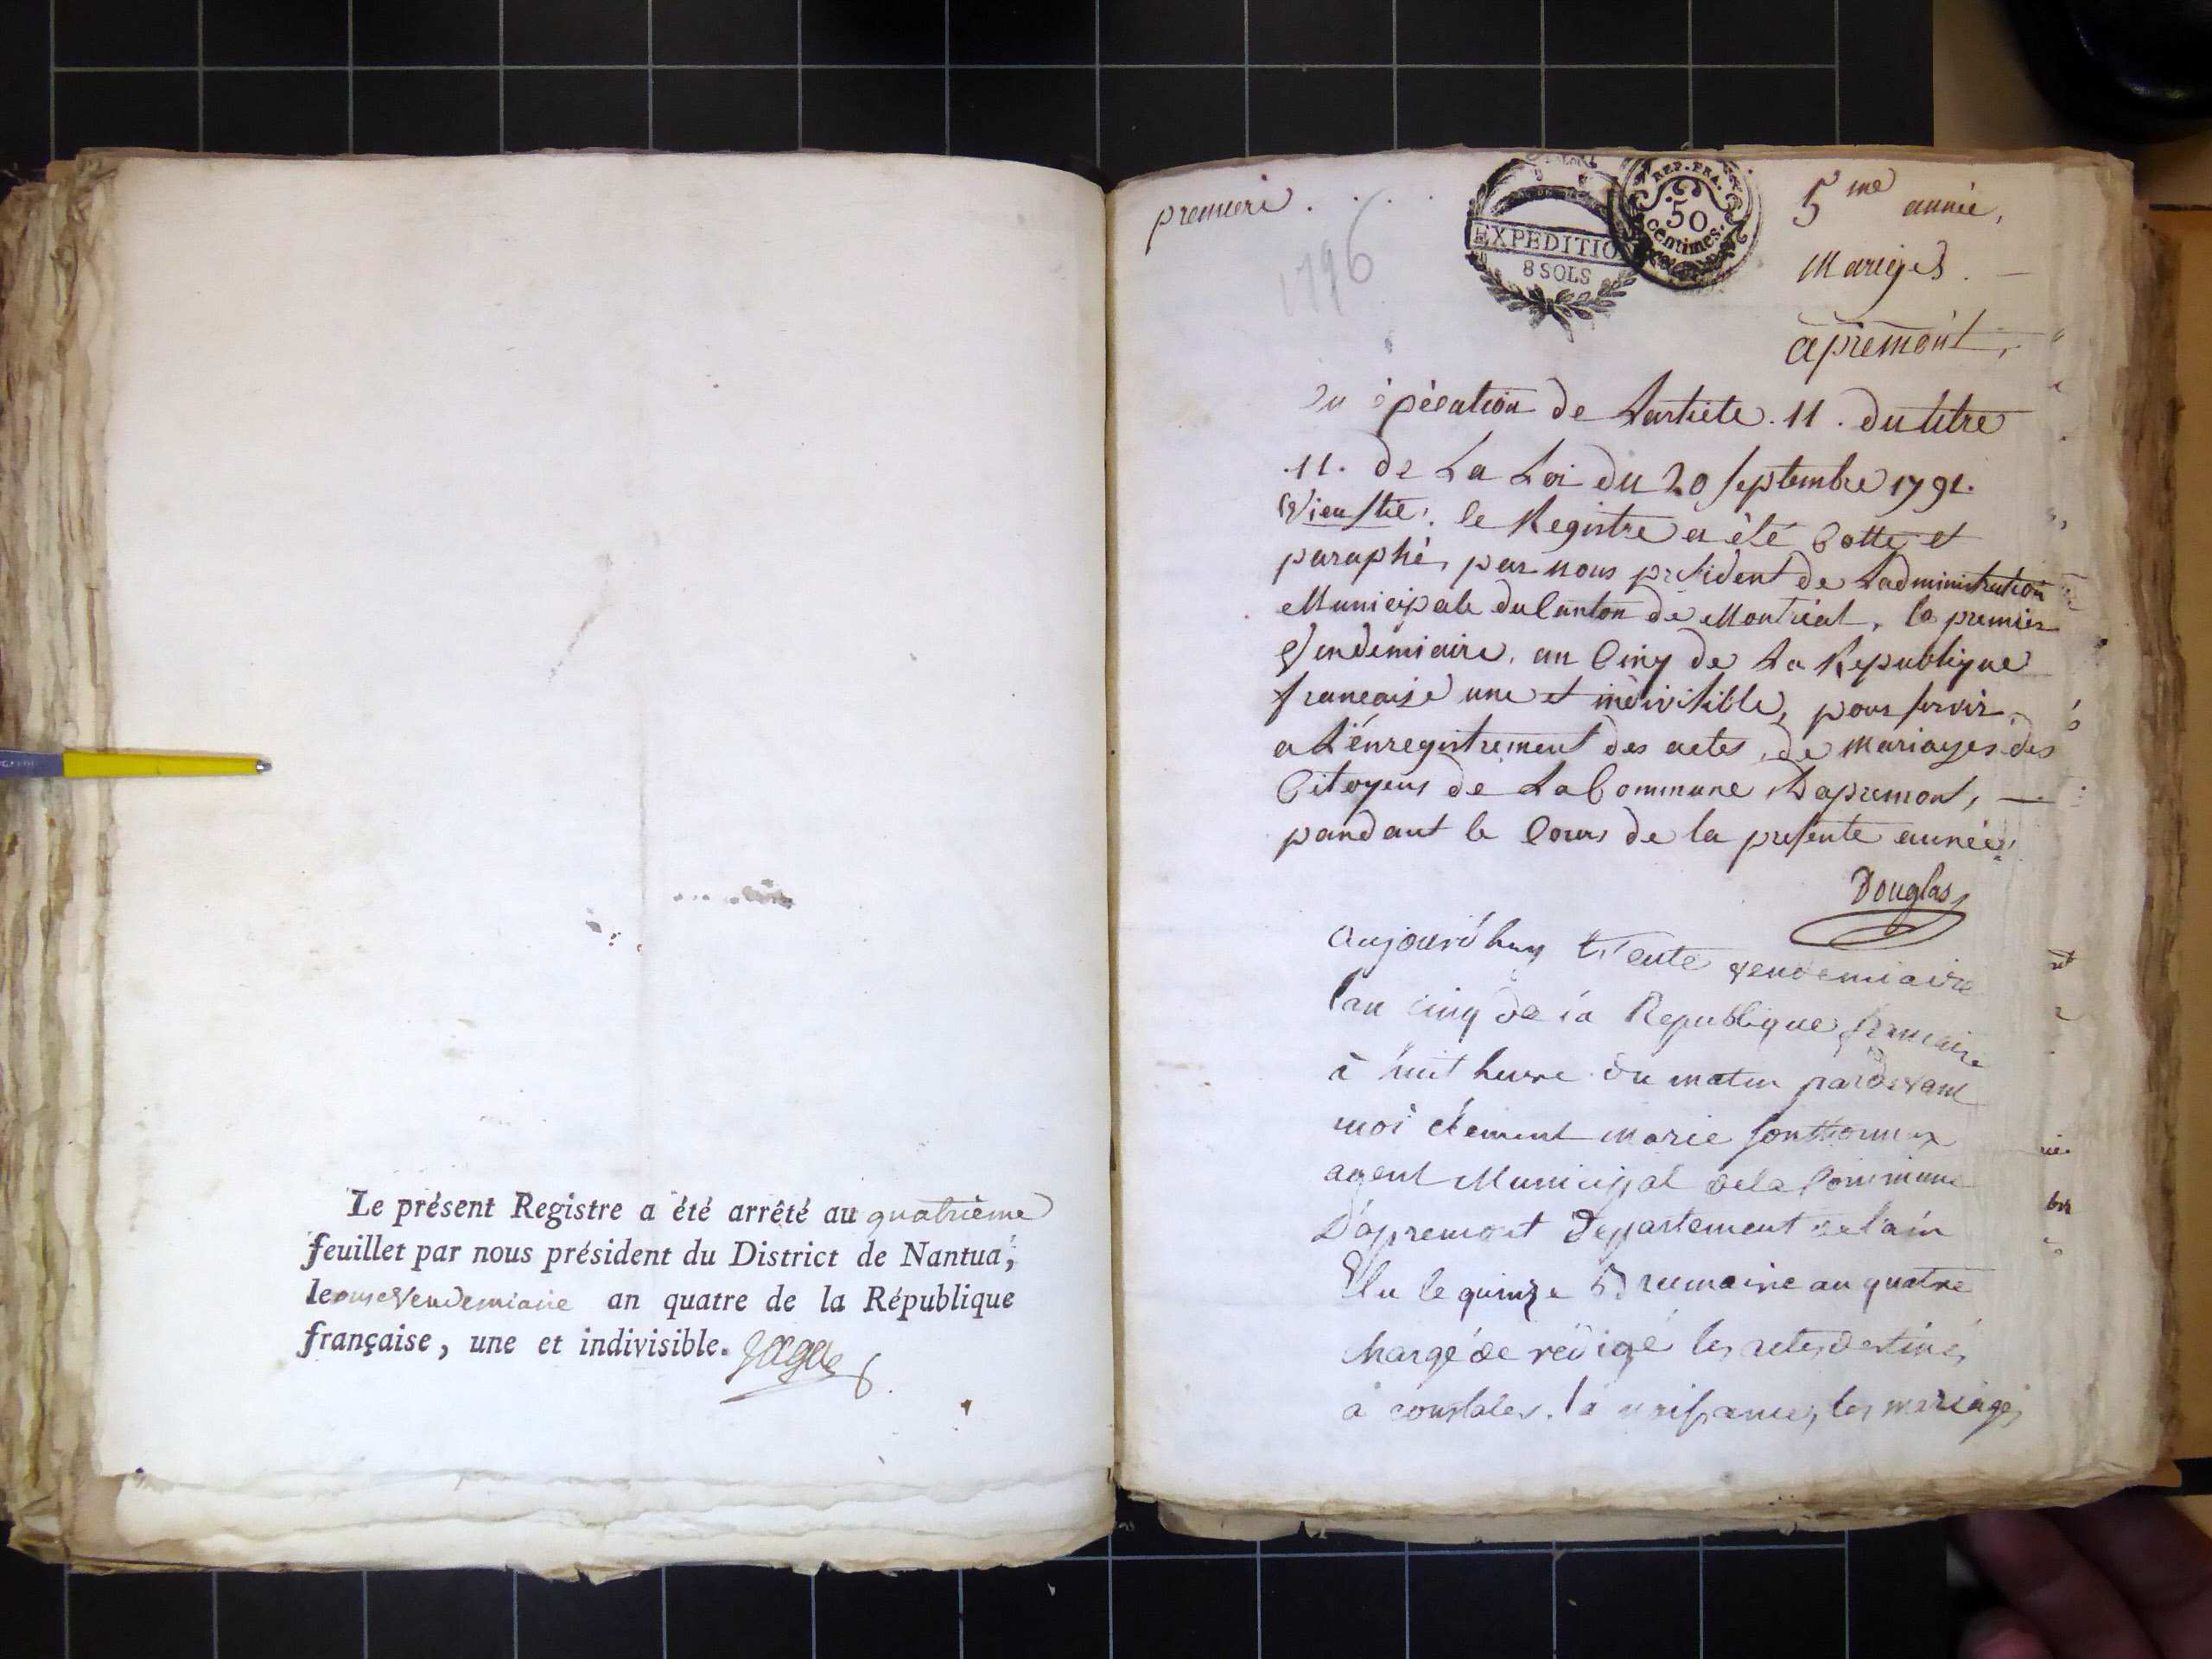 Le présent Registre a été arrêté au quatrième
feuillet par nous président du District de Nantua,
le onse Vendemiaire an quatre de la République
française, une et indivisible.
premiere
1796
EXPEDITIO
8 SOLS
REP. FRA.
50
centimes.
5me année,
Mariages
apremont,
En éxécution de L'article 11. du titre
11. de La Loi du 20 septembre 1792.
Vieu stie. le Registre a été Cotté et
paraphé, par nous président de L'administration
Municipale du Canton de Montréal, le premier
Vendemiaire, an Cinq de La Republique
francaise une et indivisible, pour servir
a L'énregistrement des actes de mariages des
Citoyens de La Commune Dapremont,
pandant le Cours de la presente année
Douglas
aujourd'huy trente vendemiaire
lan cinq de la Republique francaise
à huit heure du matin pardevant
moi clément marie sonthonnax
agent Municipal de la Commune
D'apremont departement de l'ain
Elu le quinze Brumaire an quatre
chargé de rédigé les actes destinés
à constater la naissances, les mariages